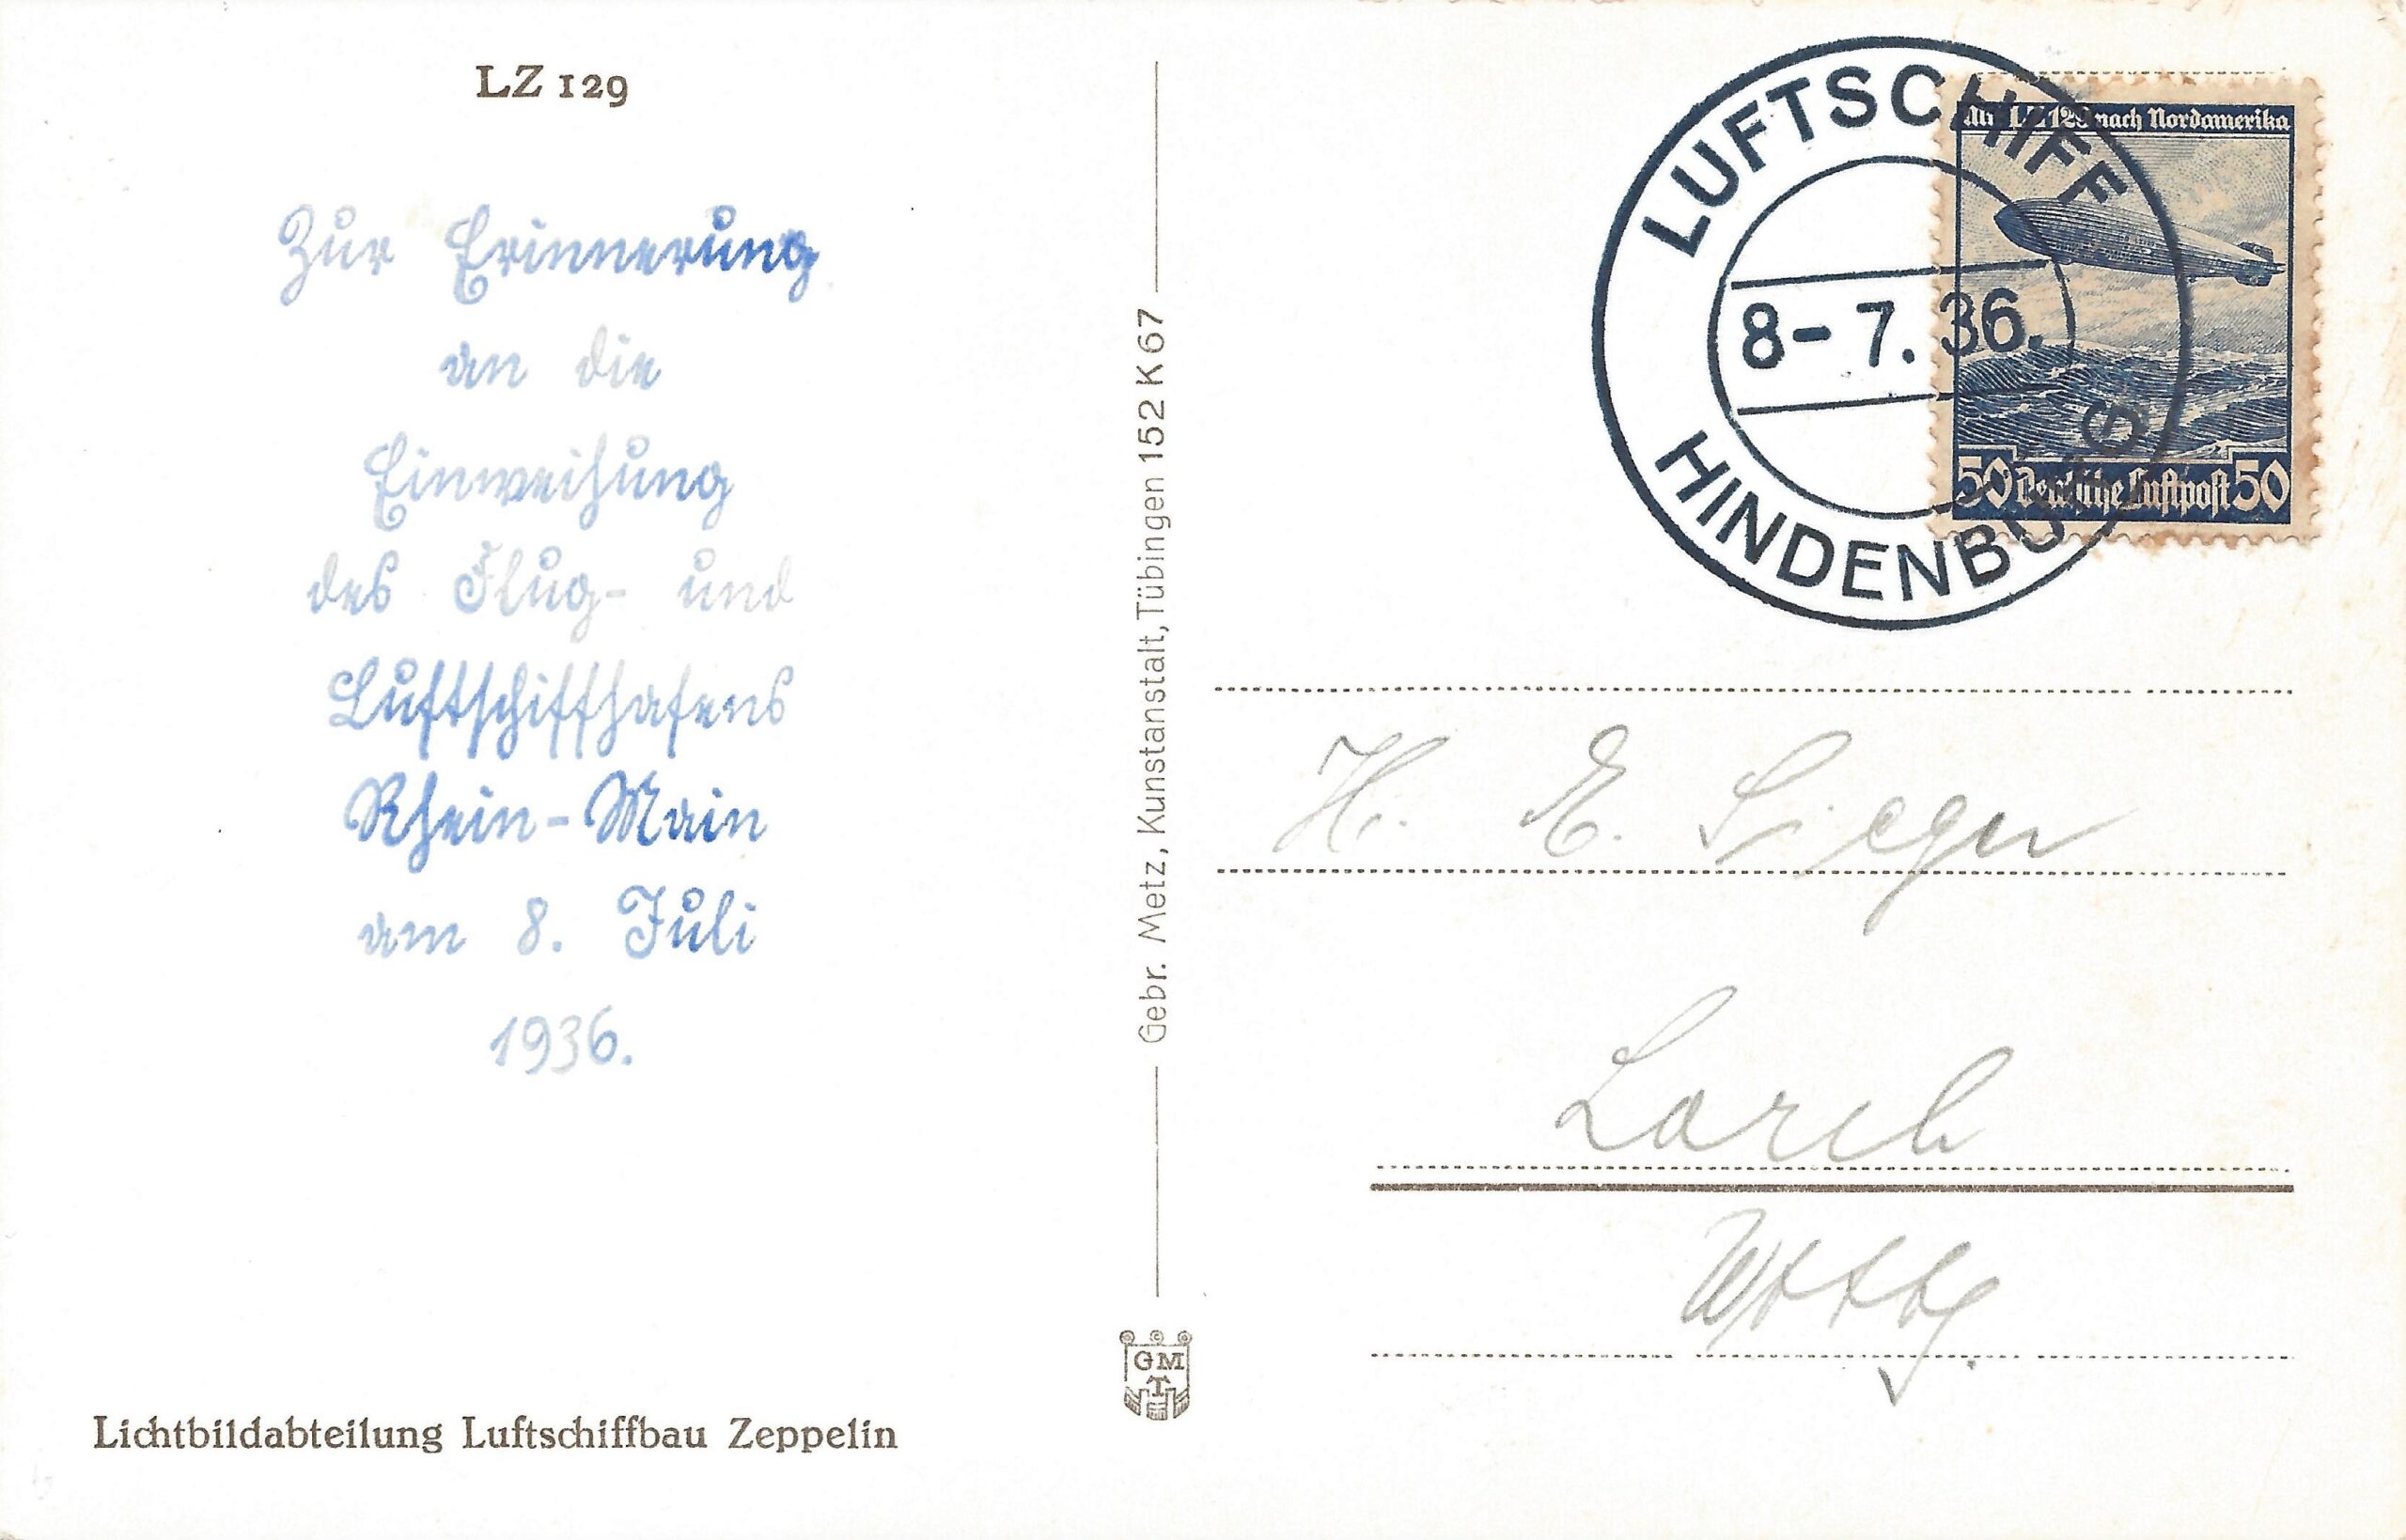 LZ 129
Zur Erinnerung
an die
Einweihung
des Flug- und
Luftschiffhafens
Rhein-Main
am 8. Juli
1936.
Lichtbildabteilung Luftschiffbau Zeppelin
Gebr. Metz, Kunstanstalt, Tübingen 152 K 67
GMT
LUFTSCHIFF
8-7.36.
HINDENBURG
Mit LZ 129 nach Nordamerika
50 Deutsche Luftpost 50
H. E. Sieger
Lorch
Wttbg.